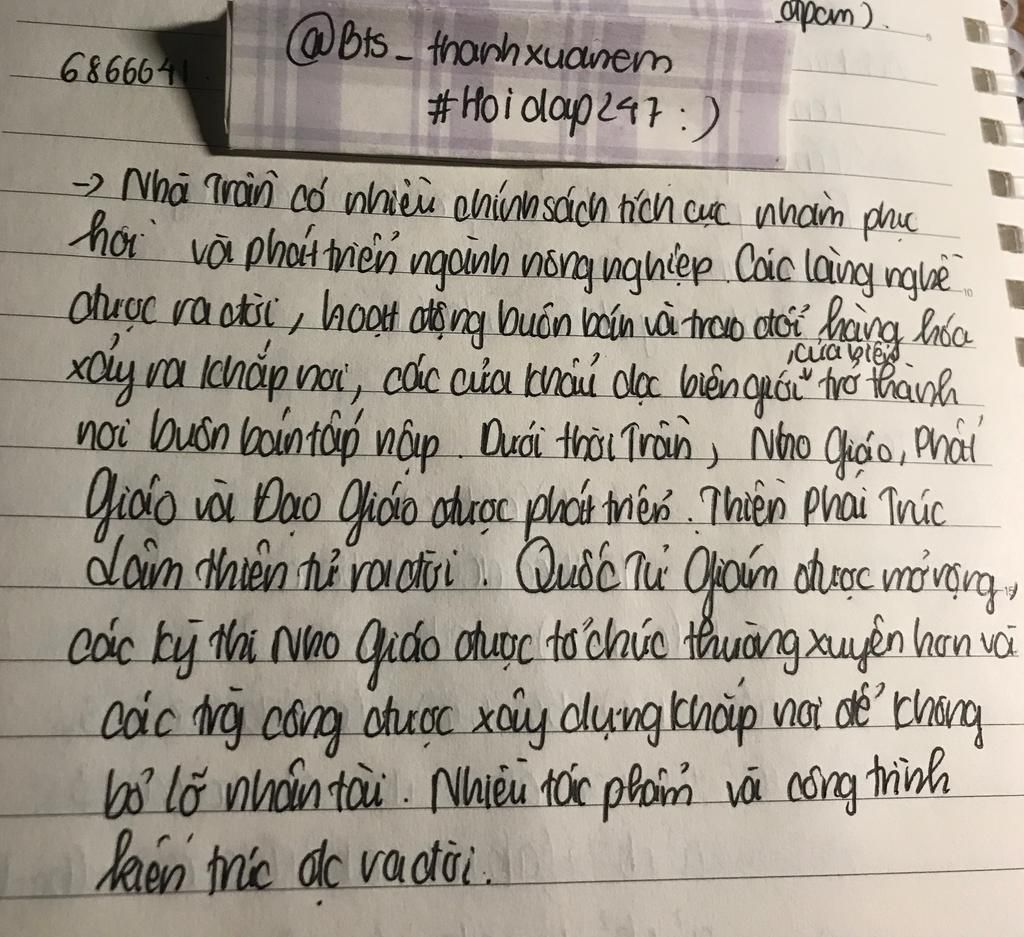 đpcm).
6866641
@Bts_thanhxuanem
#Hoidap247:)
-> Nhà Trần có nhiều chính sách tích cực nhằm phục
hồi và phát triển ngành nông nghiệp. Các làng nghề
được ra đời, hoạt động buôn bán và trao đổi hàng hóa
, cửa biển
xảy ra khắp nơi, các cửa khẩu dọc biên giới trở thành
nơi buôn bán tấp nập. Dưới thời Trần, Nho Giáo, Phật
Giáo và Đạo Giáo được phát triển. Thiền phái Trúc
lâm thiền tử ra đời. Quốc Tử Giám được mở rộng,
các kỳ thi Nho Giáo được tổ chức thường xuyên hơn và
các trg công được xây dựng khắp nơi để không
bỏ lỡ nhân tài. Nhiều tác phẩm và công trình
kiến trúc đc ra đời.